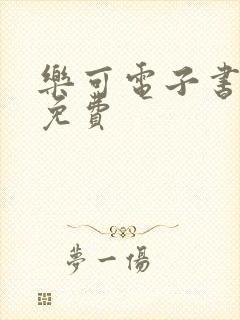 樂可電子書
免費
夢一傷